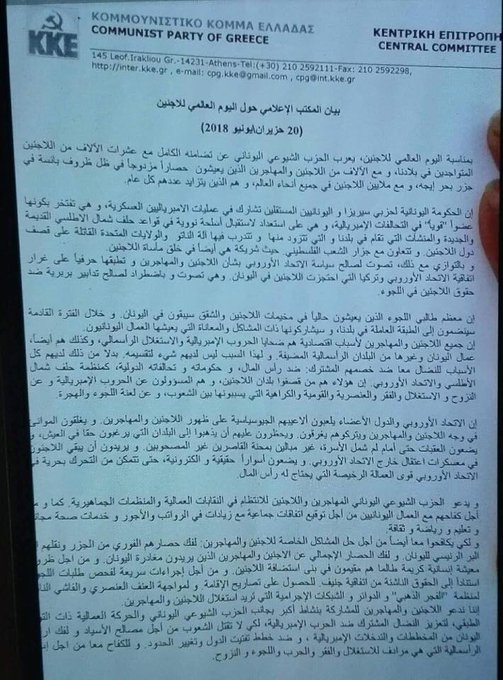 KKE
ΚΟΜΜΟΥΝΙΣΤΙΚΟ ΚΟΜΜΑ ΕΛΛΑΔΑΣ
COMMUNIST PARTY OF GREECE
ΚΕΝΤΡΙΚΗ ΕΠΙΤΡΟΠΗ
CENTRAL COMMITTEE
145 Leof.Irakliou Gr.-14231-Athens-Tel:(+30) 210 2592111-Fax: 210 2592298,
http://inter.kke.gr , e-mail: cpg.kke@gmail.com , cpg@int.kke.gr
بيان المكتب الإعلامي حول اليوم العالمي للاجنين
(20 حزيران/يونيو 2018)
بمناسبة اليوم العالمي للاجنين، يعرب الحزب الشيوعي اليوناني عن تضامنه الكامل مع عشرات الآلاف من اللاجنين
المتواجدين في بلادنا، و مع الآلاف من اللاجنين و المهاجرين الذين يعيشون حصاراً مزدوجاً في ظل ظروف بائسة في
جزر بحر إيجه، و مع ملايين اللاجنين في جميع أنحاء العالم، و هم الذين يتزايد عددهم كل عام.
إن الحكومة اليونانية لحزبي سيريزا و اليونانيين المستقلين تشارك في عمليات الامبرياليين العسكرية، و هي تفتخر بكونها
عضواً "قوياً" في التحالفات الإمبريالية، و هي على استعداد لاستقبال أسلحة نووية في قواعد حلف شمال الاطلسي القديمة
والجديدة والمنشآت التي تقام في بلدنا و التي تتزود منها و تتدرب فيها آلة الناتو والولايات المتحدة القاتلة على قصف
دول اللاجنين. و تتعاون مع جزار الشعب الفلسطيني حيث شريكة هي أيضاً في خلق مأساة اللاجنين.
و بالتوازي مع ذلك، تصوت لصالح سياسة الاتحاد الأوروبي بشأن اللاجنين والمهاجرين و تطبقها حرفياً على غرار
اتفاقية الاتحاد الأوروبي وتركيا التي احتجزت اللاجنين في اليونان. وهي تصوت و باضطراد لصالح تدابير بربرية ضد
حقوق اللاجنين في اللجوء.
إن معظم طالبي اللجوء الذين يعيشون حالياً في مخيمات اللاجنين والشقق سيبقون في اليونان. و خلال الفترة القادمة
سينضمون إلى الطبقة العاملة في بلدنا، و سيشاركونها ذات المشاكل و المعاناة التي يعيشها العمال اليونانيون.
إن جميع اللاجنين والمهاجرين لأسباب اقتصادية هم ضحايا الحروب الإمبريالية والاستغلال الرأسمالي، وكذلك هم أيضاً،
عمال اليونان وغيرها من البلدان الرأسمالية المضيفة. و لهذا السبب ليس لديهم شيء لتقسيمه. بدلا من ذلك لديهم كل
الأسباب للنضال معا ضد خصمهم المشترك: ضد رأس المال، و حكوماته و تحالفاته الدولية، كمنظمة حلف شمال
الأطلسي والاتحاد الأوروبي. إن هؤلاء هم من قصفوا بلدان اللاجنين، و هم المسؤولون عن الحروب الإمبريالية و عن
النزوح و الاستغلال والفقر والعنصرية والقومية والكراهية التي يسببونها بين الشعوب، و عن لعنة اللجوء والهجرة.
إن الاتحاد الأوروبي والدول الأعضاء يلعبون ألاعيبهم الجيوسياسية على ظهور اللاجنين والمهاجرين. و يغلقون الموانئ
في وجه اللاجنين والمهاجرين ويتركوهم يغرقون. ويحظرون عليهم أن يذهبوا إلى البلدان التي يرغبون حقا في العيش، و
يضعون العقبات حتى أمام لم شمل الأسرة، غير مبالين بمحنة القاصرين غير المصحوبين. و يريدون أن يبقي اللاجنون
في معسكرات اعتقال خارج الاتحاد الأوروبي. و يضعون أسواراً حقيقية و الكترونية، حتى تتمكن من التحرك بحرية في
الاتحاد الأوروبي قوى العمالة الرخيصة التي يحتاج له رأس المال.
و يدعو الحزب الشيوعي اليوناني المهاجرين واللاجنين للانتظام في النقابات العمالية والمنظمات الجماهيرية. كما و
أجل كفاحهم مع العمال اليونانيين من أجل توقيع اتفاقات جماعية مع زيادات في الرواتب والأجور و خدمات صحة
و تعليم و رياضة و ثقافة
و لكي يكافحوا معا أيضا من أجل حل المشاكل الخاصة للاجنين والمهاجرين: لفك حصارهم الفوري من الجزر ونقلهم
البر الرئيسي لليونان. و لفك الحصار الإجمالي عن الاجنين والمهاجرين الذين يريدون مغادرة اليونان. و من أجل
معيشة إنسانية كريمة طالما هم مقيمون في بنى استضافة اللاجنين. و من أجل إجراءات سريعة لفحص طلبات
استناداً إلى الحقوق الناشئة من اتفاقية جنيف للحصول على تصاريح الإقامة. و لمواجهة العنف العنصري والفاشي
منظمة "الفجر الذهبي" و الشبكات الإجرامية التي تريد استغلال اللاجنين والمهاجرين.
إننا ندعو اللاجنين والمهاجرين للمشاركة بنشاط أكبر بجانب الحزب الشيوعي اليوناني والحركة العمالية ذات
الطبقي، لتعزيز النضال المشترك ضد الحرب الإمبريالية، لكي لا تقتل الشعوب من أجل مصالح الأسياد و لفك
اليونان من المخططات والتدخلات الإمبريالية، و ضد خطط تفتيت الدول وتغيير الحدود. و للكفاح معا من اجل
الرأسمالية التي هي مرادف للاستغلال والفقر والحرب واللجوء و النزوح.